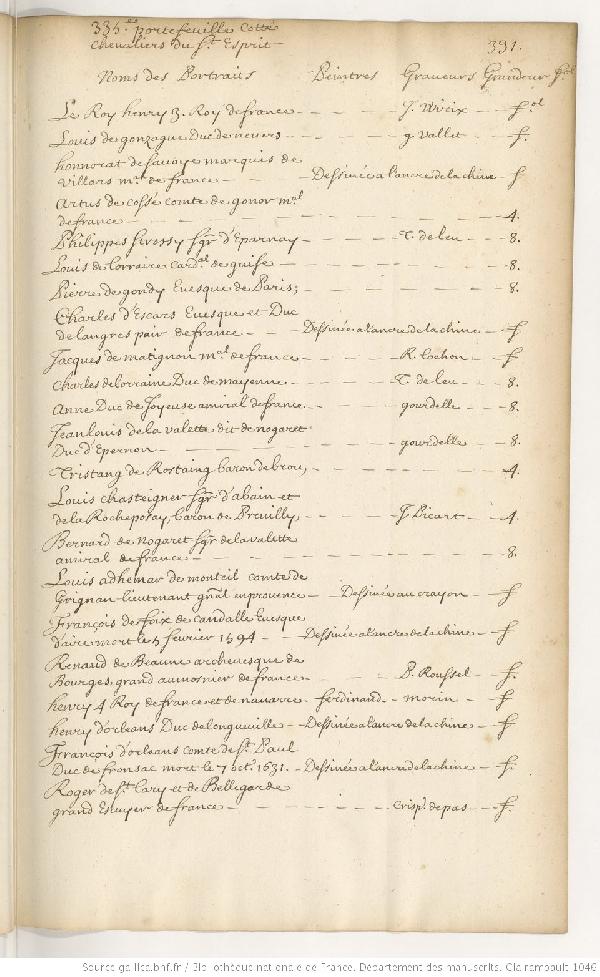 335.es portefeuille Cotté
chevaliers du St. Esprit
391.
Noms des Portraits Peintres Graveurs Grandeur
Le Roy henry 3. Roy de france - - - - J. Wrix - - fol
Louis de gonzague Duc de nevers - - - - g. vallet - - f.
honnorat de savoye marquis de
villars mal. de france - - - Dessinée a l'ancre de la chine - f
artus de cossé comte de gonor mal
de france - - - - - - - - - 4.
Philippes strossy sgr. d'Epernay - - - - T. de leu - - 8.
Louis de lorraine card.al de guise - - - - - - 8.
Pierre de gondy Evesque de Paris; - - - - - - 8.
Charles d'Escars Evesque et Duc
de langres pair de france - - - Dessinée a l'ancre de la chine - f
Jacques de matignon mal. de france - - - - R. Lochon - - f
charles de lorraine Duc de mayenne - - - - T. de leu - - 8.
anne Duc de Joyeuse amiral de france. - - - gourdelle - - 8.
Jean louis de la valette dit de nogaret
Duc d'Epernon - - - - - - gourdelle - - 8.
Tristang de Rostaing baron de brou, - - - - - - 4.
Louis chasteigner sgr. d'abain et
de la Rocheposay baron de Preuilly, - - - J. Picart - - 4.
Bernard de nogaret sgr. de la valette
amiral de france - - - - - - - - 8.
Louis adhemar de monteil comte de
Grignan lieutenant gnal. en provence - - Dessinée au crayon - - f
François de foix de candalle Evesque
d'aire mort le 5 fevrier 1594 - - Dessinée a l'ancre de la chine - f
Renaud de Beaune archevesque de
Bourges grand aumosnier de france - - - - P. Roussel - - f.
henry 4 Roy de france et de navarre - ferdinand - morin - - f
henry d'orleans Duc de longueville - Dessinée a l'ancre de la chine - f
François d'orleans comte de St. Paul
Duc de fronsac mort le 7 oct. 1631. - Dessinée a l'ancre de la chine - f.
Roger de St. Lary et de Bellegarde
grand Escuyer de france - - - - - crisp. de pas - - f.
Source gallica.bnf.fr / Bibliothèque nationale de France. Département des manuscrits. Clairambault 1046